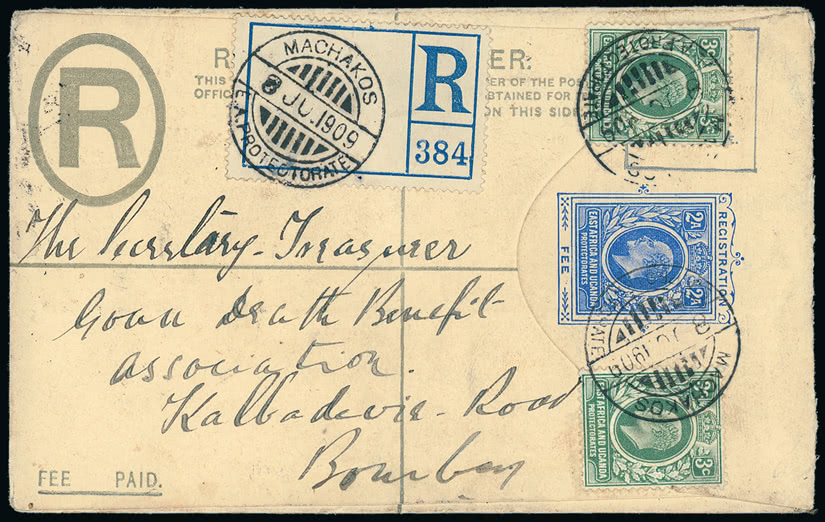 R
MACHAKOS
8 JU.1909
E.A. PROTECTORATE
R
384
R ER:
THIS ER OF THE PO
OFFIC BTAINED FOR
ON THIS SIDE
3c
EAST AFRICA AND UGANDA
PROTECTORATES
3c
REGISTRATION
FEE
2A
EAST AFRICA AND UGANDA
PROTECTORATES
2A
MACHAKOS
8 JU.1909
3c
EAST AFRICA AND UGANDA
PROTECTORATES
3c
The Secretary-Treasurer
Goan Death Benefit
Association.
Kalbadevie-Road
Bombay
FEE PAID.